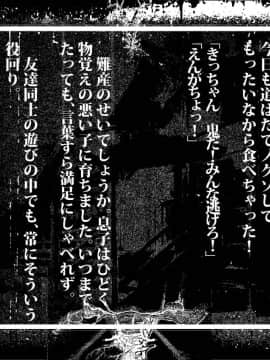 今日も道ばたでノグソして
もったいなから食べちゃった！
「きっちゃん　鬼だ！みんな逃げろ！」
「えんがちょっ！」
難産のせいでしょうか。息子はひどく
物覚えの悪い子に育ちました。いつまで
たっても、言葉すら満足にしゃべれず。
友達同士の遊びの中でも、常にそういう
役回り。